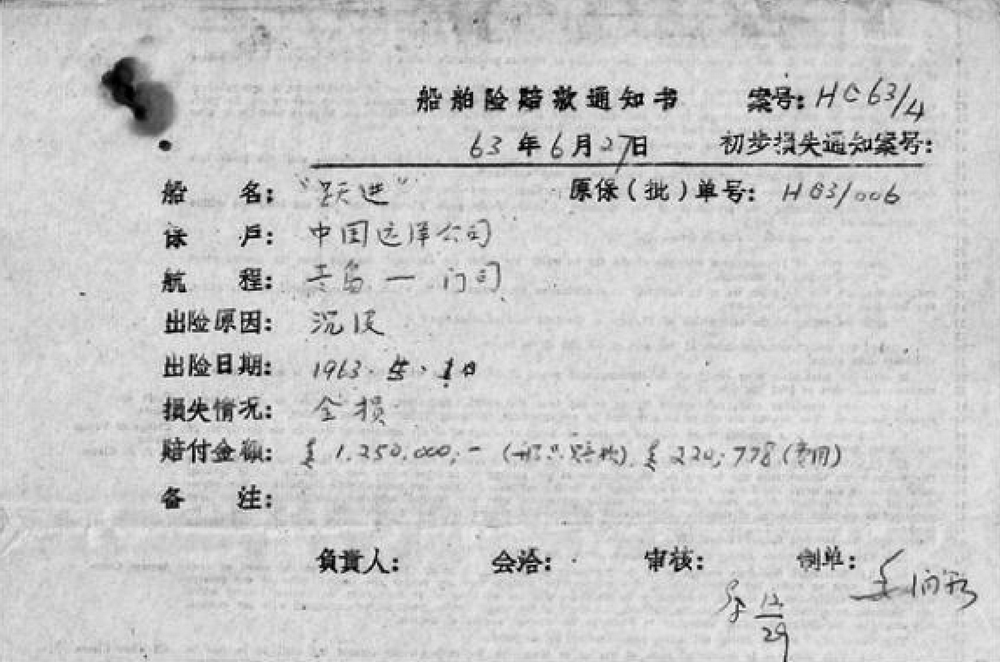 船舶险赔款通知书 案号: HC63/4
63年6月27日 初步损失通知案号:
船 名: "跃进" 原保(批)单号: H63/006
保 户: 中国远洋公司
航 程: 青岛 — 门司
出险原因: 沉没
出险日期: 1963.5.1日
损失情况: 全损
赔付金额: £1,250,000.- (船只赔款) £220,778 (费用)
备 注:
负责人: 会洽: 审核: 制单:
12/29